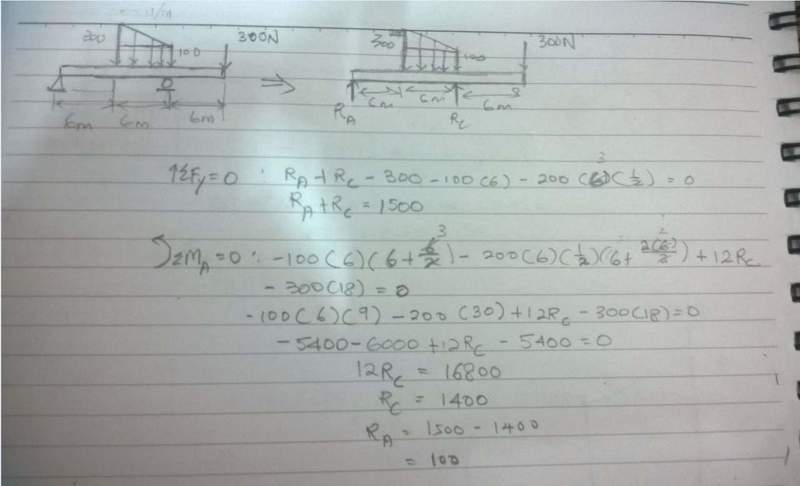 N/m
300 100 300N ⇒ 300 100 300N
6m 6m 6m R_A 6m 6m R_C 6m
↑ΣFy=0 : R_A + R_C - 300 - 100(6) - 200(6)(1/2) = 0
R_A + R_C = 1500
ΣM_A=0 : -100(6)(6+6/2) - 200(6)(1/2)(6+2(6)/3) + 12R_C
- 300(18) = 0
-100(6)(9) - 200(30) + 12R_C - 300(18) = 0
-5400 - 6000 + 12R_C - 5400 = 0
12R_C = 16800
R_C = 1400
R_A = 1500 - 1400
= 100